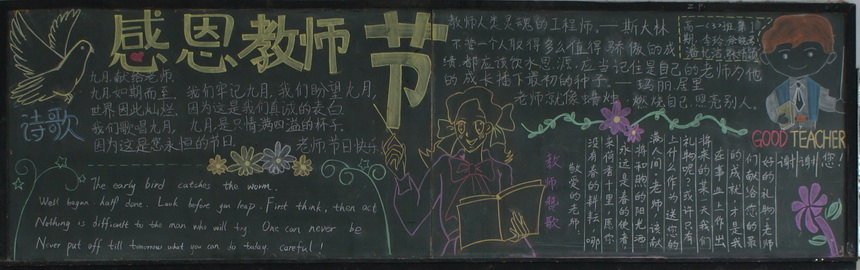 感恩教师节
诗歌
九月献给老师.
九月如期而至. 我们牢记九月, 我们盼望九月,
世界因此灿烂. 因为这是我们真诚的表白
我们歌唱九月. 九月是只情满四溢的杯子.
因为这是您永恒的节日. 老师,节日快乐
The early bird catches the worm.
Well began half done. Look before you leap. First think, then act
Nothing is difficult to the man who will try. One can never be
Never put off till tomorrow what you can do today. careful!
教师人类灵魂的工程师。——斯大林
不管一个人取得多么值得骄傲的成
绩都应该饮水思源,应当记住是自己的老师为他
的成长播下最初的种子——玛丽居里
老师就像蜡烛 燃烧自己,照亮别人。
高一(3)班
GOOD TEACHER
谢谢您!
教师赞歌
敬爱的老师,
没有春的耕耘,哪
来何香十里,愿你
永远是春的使者,
将和煦的阳光洒
满人间 老师,该献
上什么作为送您的
礼物呢?或许只有
将来的某一天我们
在事业上作出
的成就,才是我
们献给您的最
好的礼物 老师